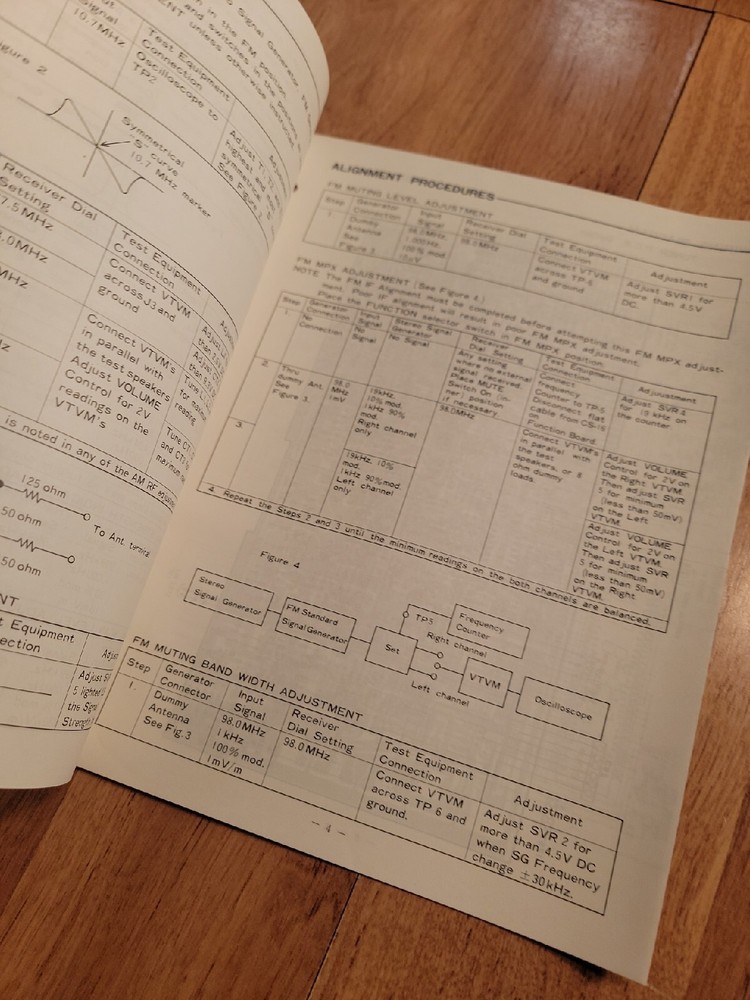 Signal Generator FM
in the FM position
and switches in the
unless otherwise
Signal
10.7MHz
Test Equipment
Connection
Oscilloscope to
TP2
Figure 2
Symmetrical
"S" curve
10.7 MHz marker
See Figure 2.
Receiver Dial
Setting
Test Equipment
Connection
Connect VTVM
across J3 and
ground
Connect VTVM's
in parallel with
the test speakers
Adjust VOLUME
Control for 2V
readings on the
VTVM's
reading
is noted in any of the AM RF
125 ohm
50 ohm
50 ohm
To Ant. terminal
Equipment
Adjust
5 lighted
the Signal
Strength
ALIGNMENT PROCEDURES
FM MUTING LEVEL ADJUSTMENT
Step
Generator
Connection
Input
Signal
Receiver Dial
Setting
Test Equipment
Connection
Adjustment
1
Dummy
Antenna
See
Figure 3
98.0MHz
100% mod.
98.0MHz
Connect VTVM
across TP 6
and ground
Adjust SVR1 for
more than 4.5V
DC.
FM MPX ADJUSTMENT (See Figure 4)
NOTE The FM IF Alignment must be completed before attempting this FM MPX adjust-
ment. Poor IF alignment will result in poor FM MPX adjustment.
Place the FUNCTION selector switch in FM MPX position.
Step
Generator
Connection
Input
Signal
Stereo Signal
Generator
Receiver
Dial Setting
Test Equipment
Connection
Adjustment
1
No
Connection
No
Signal
No Signal
Any setting
where no external
signal received
Switch On (in-
ner) position
if necessary
Connect
Frequency
Counter to TP5
Connect flat
Cable from
Function Board.
Adjust SVR4
for 19 kHz on
the counter
2.
Thru
dummy Ant.
See
Figure 3.
98.0
MHz
1mV
19kHz
10% mod.
1kHz 90%
mod.
Right channel
only
98.0MHz
Connect VTVM's
in parallel with
the test
speakers, or 8
ohm dummy
loads.
Adjust VOLUME
Control for 2V on
the Right VTVM.
Then adjust SVR
5 for minimum
(less than 50mV)
on the Left
VTVM.
3.
19kHz. 10%
mod.
1kHz 90%mod.
Left channel
only
Adjust VOLUME
Control for 2V on
the Left VTVM.
Then adjust SVR
5 for minimum
(less than 50mV)
on the Right
VTVM.
4. Repeat the Steps 2 and 3 until the minimum readings on the both channels are balanced.
Figure 4
Stereo
Signal Generator
FM Standard
Signal Generator
Set
TP5
Frequency
Counter
Right channel
Left channel
VTVM
Oscilloscope
FM MUTING BAND WIDTH ADJUSTMENT
Step
Generator
Connector
Input
Signal
Receiver
Dial Setting
Test Equipment
Connection
Adjustment
1.
Dummy
Antenna
See Fig.3
98.0MHz
1kHz
100% mod.
1mV/m
98.0MHz
Connect VTVM
across TP 6 and
ground.
Adjust SVR 2 for
more than 4.5V DC
when SG Frequency
change ±30kHz.
– 4 –